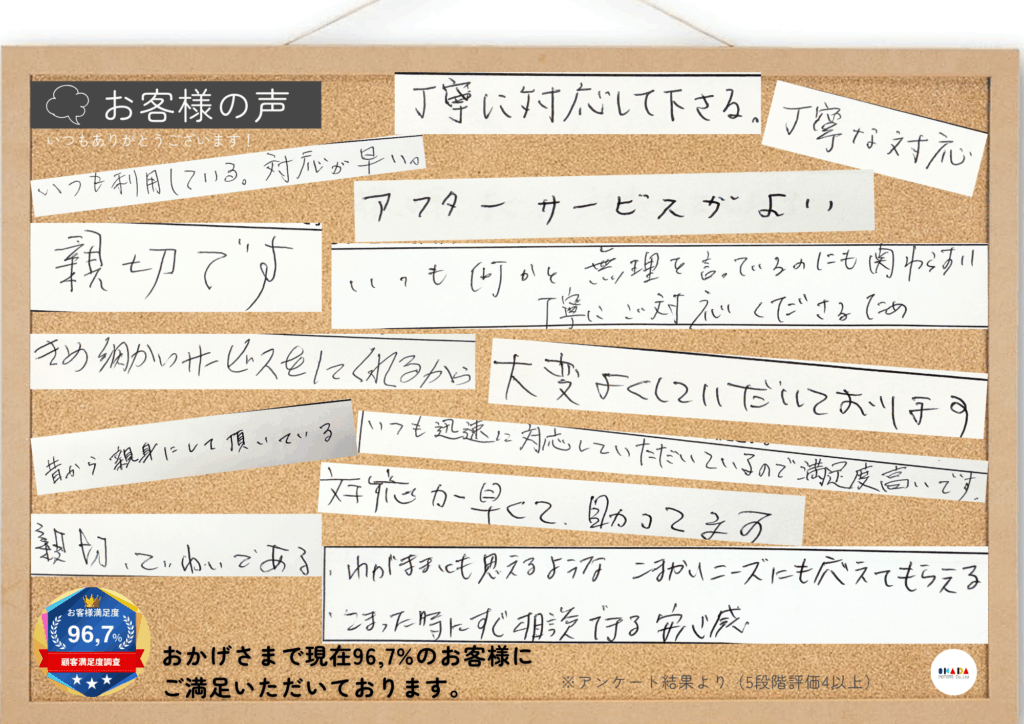 お客様の声
いつもありがとうございます！
丁寧に対応して下さる。
丁寧な対応
いつも利用している。対応が早い。
アフターサービスがよい
親切です
いつも何かと無理を言っているのにも関わらずい
丁寧にご対応くださるため
きめ細かいサービスをしてくれるから
大変よくしていただいております
昔から親身にして頂いている
いつも迅速に対応していただいているので満足度高いです。
対応が早くて、助かってます
親切、ていねいである
・わがままにも思えるような こまかいニーズにも応えてもらえる
・こまった時にすぐ相談できる安心感
お客様満足度
96,7%
顧客満足度調査
おかげさまで現在96,7%のお客様に
ご満足いただいております。
※アンケート結果より（5段階評価4以上）
OHADA